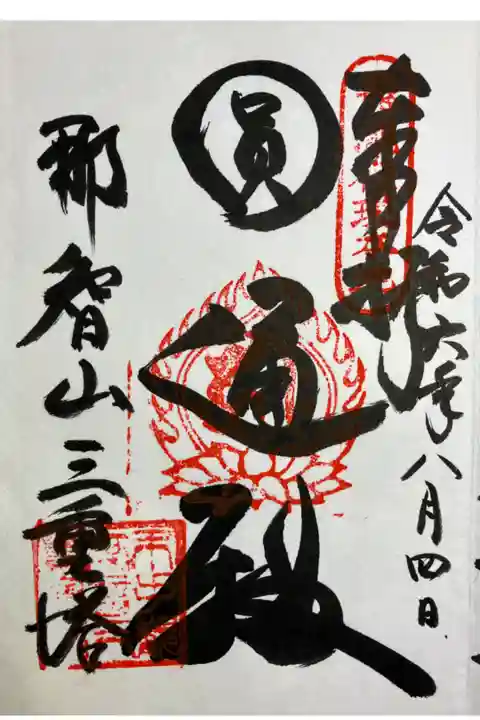 令和六年八月四日
奉拝
圓通殿
那智山三重塔